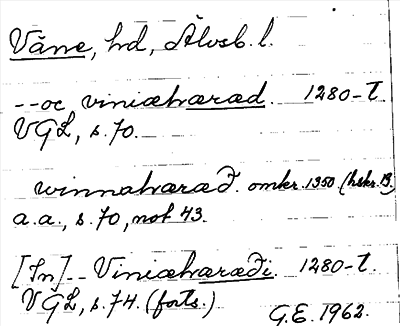 Väne, hd, Älvsb. l.
--oc viniæhæræd. 1280-t.
VGL, s. 70.
winnahæræð. omkr. 1350 (hskr. B)
a.a., s. 70, not 43.
[In]-- Viniæhæræði. 1280-t.
VGL, s. 74. (forts.)
G.E. 1962.